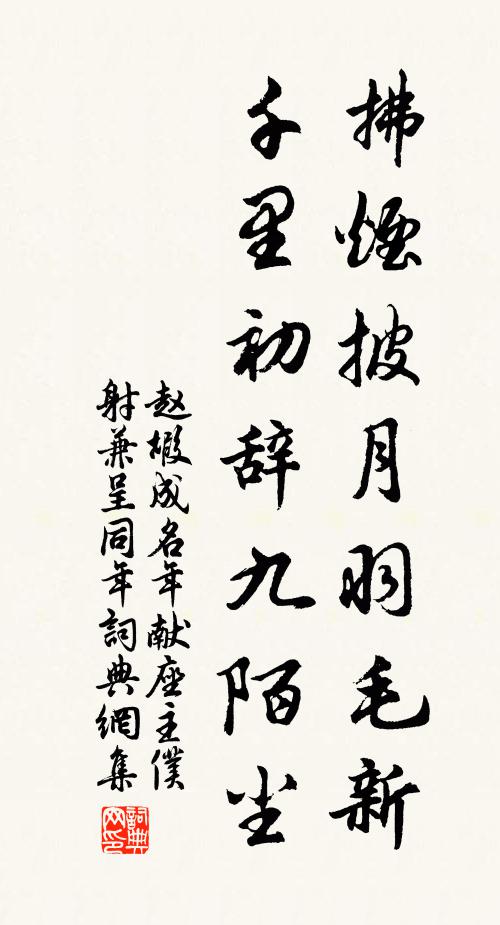 拂煙披月羽毛新
千里初辞九陌尘
赵嘏成名年献座主僕
射兼呈同年詞典網集
詞典网印